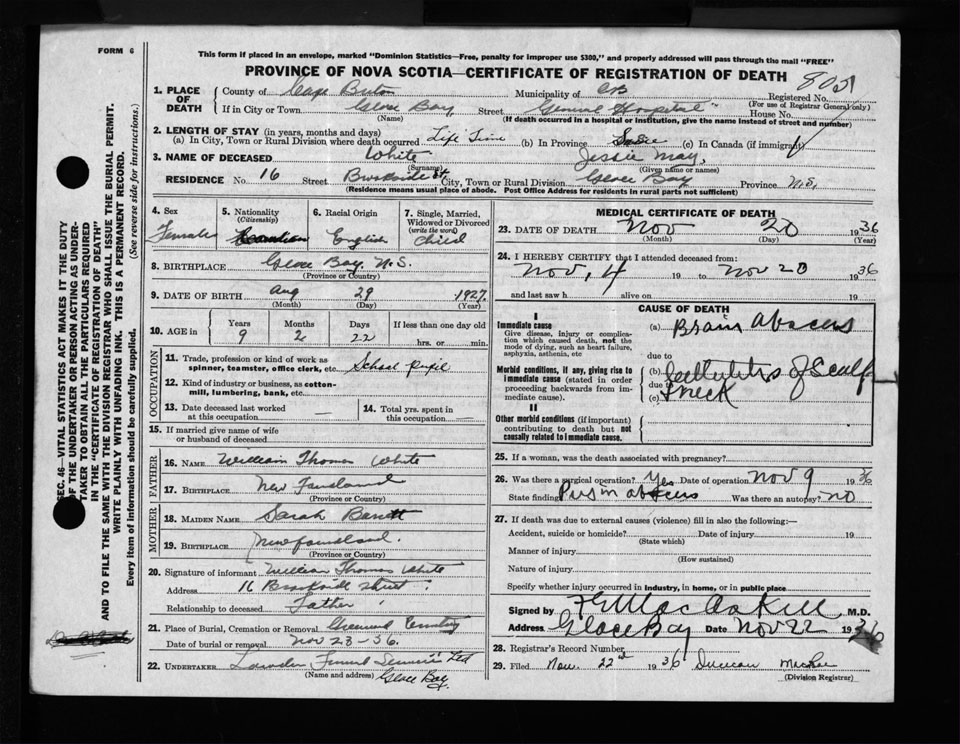 FORM 6
This form if placed in an envelope, marked "Dominion Statistics—Free, penalty for improper use $300," and properly addressed will pass through the mail "FREE"
PROVINCE OF NOVA SCOTIA—CERTIFICATE OF REGISTRATION OF DEATH
SEC. 46—VITAL STATISTICS ACT MAKES IT THE DUTY
OF THE UNDERTAKER OR PERSON ACTING AS UNDER-
TAKER TO OBTAIN ALL THE PARTICULARS REQUIRED
IN THE "CERTIFICATE OF REGISTRATION OF DEATH"
AND TO FILE THE SAME WITH THE DIVISION REGISTRAR WHO SHALL ISSUE THE BURIAL PERMIT.
WRITE PLAINLY WITH UNFADING INK. THIS IS A PERMANENT RECORD.
Every item of information should be carefully supplied. (See reverse side for instructions.)
1. PLACE OF DEATH
County of Cape Breton Municipality of CB Registered No.
(For use of Registrar General only)
If in City or Town Glace Bay, Street General Hospital House No.
(Name) (If death occurred in a hospital or institution, give the name instead of street and number)
2. LENGTH OF STAY (in years, months and days)
(a) In City, Town or Rural Division where death occurred Life Time (b) In Province (c) In Canada (if immigrant)
3. NAME OF DECEASED White Jessie May,
(Surname) (Given name or names)
RESIDENCE No. 16 Street Brookside St City, Town or Rural Division Glace Bay Province N.S.
(Residence means usual place of abode. Post Office Address for residents in rural parts not sufficient)
4. Sex Female
5. Nationality (Citizenship) Canadian
6. Racial Origin English
7. Single, Married, Widowed or Divorced (write the word) Child
8. BIRTHPLACE Glace Bay, N.S.
(Province or Country)
9. DATE OF BIRTH Aug 29 1927
(Month) (Day) (Year)
10. AGE in Years 9 Months 2 Days 22 If less than one day old hrs. or min.
OCCUPATION
11. Trade, profession or kind of work as spinner, teamster, office clerk, etc. School pupil
12. Kind of industry or business, as cotton-mill, lumbering, bank, etc.
13. Date deceased last worked at this occupation —
14. Total yrs. spent in this occupation —
15. If married give name of wife or husband of deceased
FATHER
16. NAME William Thomas White
17. BIRTHPLACE New Foundland
(Province or Country)
MOTHER
18. MAIDEN NAME Sarah
19. BIRTHPLACE Newfoundland.
(Province or Country)
20. Signature of informant William Thomas White
Address 16 Brookside Street
Relationship to deceased Father
21. Place of Burial, Cremation or Removal Greenwood Cemetery
Date of burial or removal Nov 23-36.
22. UNDERTAKER Funeral Service Ltd
(Name and address) Glace Bay.
MEDICAL CERTIFICATE OF DEATH
23. DATE OF DEATH Nov 20 1936
(Month) (Day) (Year)
24. I HEREBY CERTIFY that I attended deceased from:
Nov, 4 19 to Nov 20 1936
and last saw h alive on 19
CAUSE OF DEATH
I
Immediate cause
Give disease, injury or complication which caused death, not the mode of dying, such as heart failure, asphyxia, asthenia, etc
(a) Brain Abscess
due to
Morbid conditions, if any, giving rise to immediate cause (stated in order proceeding backwards from immediate cause).
(b) Cellulitis of Scalf
due
(c) & neck
II
Other morbid conditions (if important) contributing to death but not causally related to immediate cause.
25. If a woman, was the death associated with pregnancy?
26. Was there a surgical operation? Yes Date of operation Nov 9 1936
State finding Pus in abscess Was there an autopsy? no
27. If death was due to external causes (violence) fill in also the following:—
Accident, suicide or homicide? Date of injury 19
(State which)
Manner of injury
(How sustained)
Nature of injury
Specify whether injury occurred in industry, in home, or in public place
Signed by M.D.
Address Glace Bay Date Nov 22 1936
28. Registrar's Record Number
29. Filed Nov. 22nd 1936 Duncan MacRae
(Division Registrar)